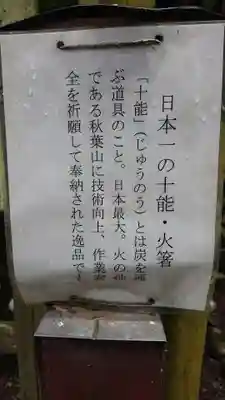 日本一の十能・火箸
「十能」(じゅうのう)とは炭を
ぶ道具のこと。日本最大。火の
である秋葉山に技術向上、作業
全を祈願して奉納された逸品で